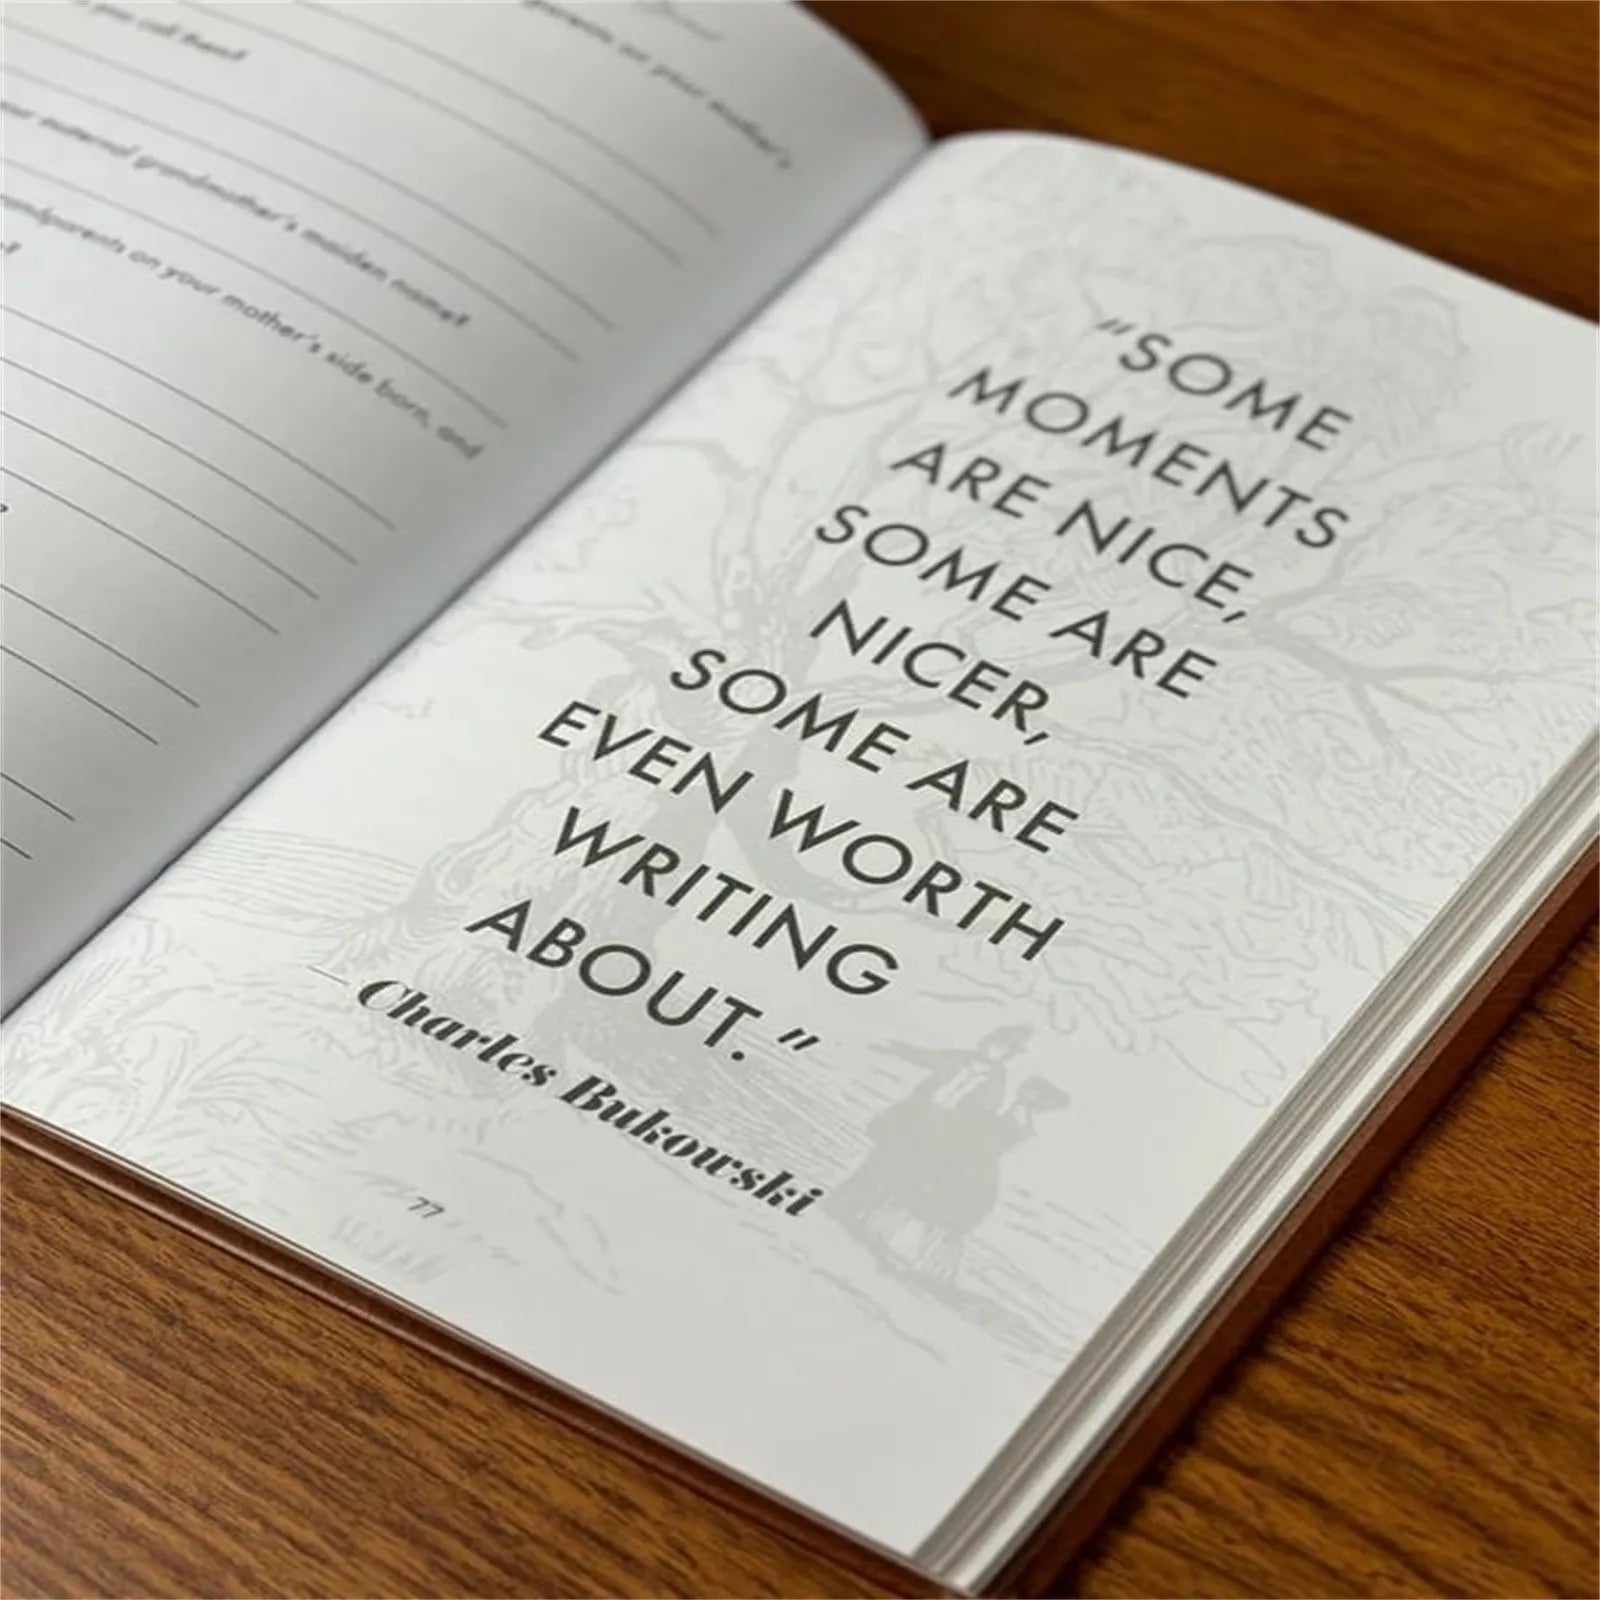 parents on your mother's
you call them?
maternal grandmother's maiden name?
on your mother's side born, and
"SOME
MOMENTS
ARE NICE,
SOME ARE
NICER,
SOME ARE
EVEN WORTH
WRITING
ABOUT."
—Charles Bukowski
77